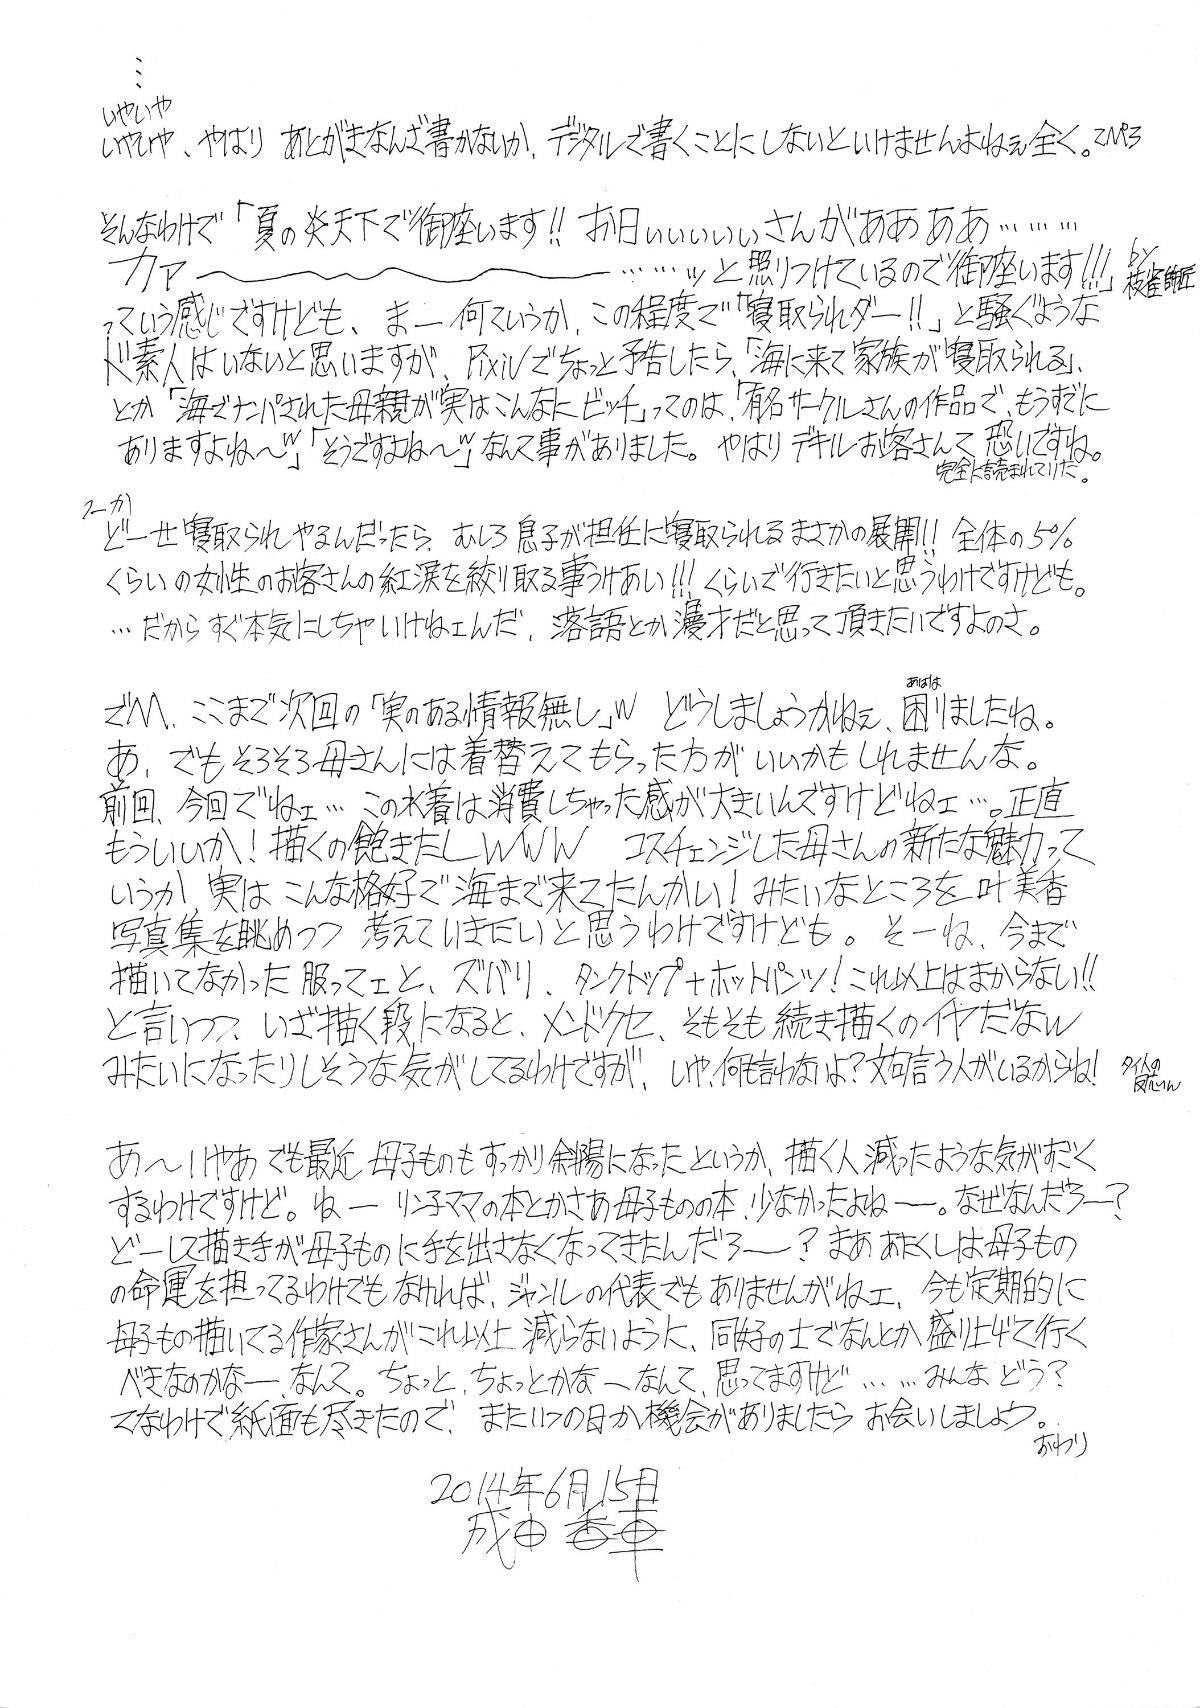 …
いやいや
いやいや、やはり あとがきなんざ書かないか、デジタルで書くことにしないといけませんよねぇ全く。
そんなわけで「夏の炎天下で御座います!! お日ぃぃぃぃぃさんがああああ………
カァ〜〜〜……ッと照りつけているので御座います!!!」by枝雀師匠
っていう感じですけども、まー何ていうか、この程度で「寝取られダー!!」と騒ぐような
ド素人はいないと思いますが、Pixivでちょっと予告したら、「海に来て家族が寝取られる」、
とか「海でナンパされた母親が実はこんなにビッチ」ってのは、「有名サークルさんの作品で、もうすでに
ありますよね〜w」「そうですよね〜w」なんて事がありました。やはりデキルお客さんて恐いですね。
完全に読まれてりだ。
つーか
どーせ寝取られやるんだったら、むしろ息子が担任に寝取られるまさかの展開!! 全体の5%
くらいの女性のお客さんの紅涙を絞り取る事うけあい!!! くらいで行きたいと思うわけですけども。
…だからすぐ本気にしちゃいけねェんだ、落語とか漫才だと思って頂きたいですよのさ。
でM、ここまで次回の「実のある情報無し」w どうしましょうかねぇ、困りましたね。
あはは
あ、でもそろそろ母さんには着替えてもらった方がいいかもしれませんな。
前回、今回でねェ…この水着は消費しちゃった感が大きいんですけどねェ…。正直
もういいか!描くの飽きたしwww コスチェンジした母さんの新たな魅力って
いうか、実はこんな格好で海まで来てたんかい!みたいなところを叶美香
写真集を眺めつつ 考えていきたいと思うわけですけども。そーね、今まで
描いてなかった服ってェと、ズバリ、タンクトップ+ホットパンツ!これ以上はまからない!!
と言いつつ、いざ描く段になると、メンドクセ、そもそも続き描くのイヤだなw
みたいになったりしそうな気がしてるわけですが、いや、何も言わないよ?文句言う人がいるからね!
あ〜いやあでも最近 母子ものもすっかり斜陽になったというか、描く人減ったような気がすごく
するわけですけど。ねー リン子ママの本とかさあ母子ものの本、少なかったよねー。なぜなんだろー?
どーして描き手が母子ものに手を出さなくなってきたんだろー?まああたくしは母子もの
の命運を担ってるわけでもなければ、ジャンルの代表でもありませんがねェ、今も定期的に
母子もの描いてる作家さんがこれ以上減らないように、同好の士でなんとか盛り上げて行く
べきなのかなー、なんて。ちょっと、ちょっとかなーなんて、思ってますけど……みんなどう?
てなわけで紙面も尽きたので、またいつの日か機会がありましたらお会いしましょう。
おわり
2014年6月15日
成田香車